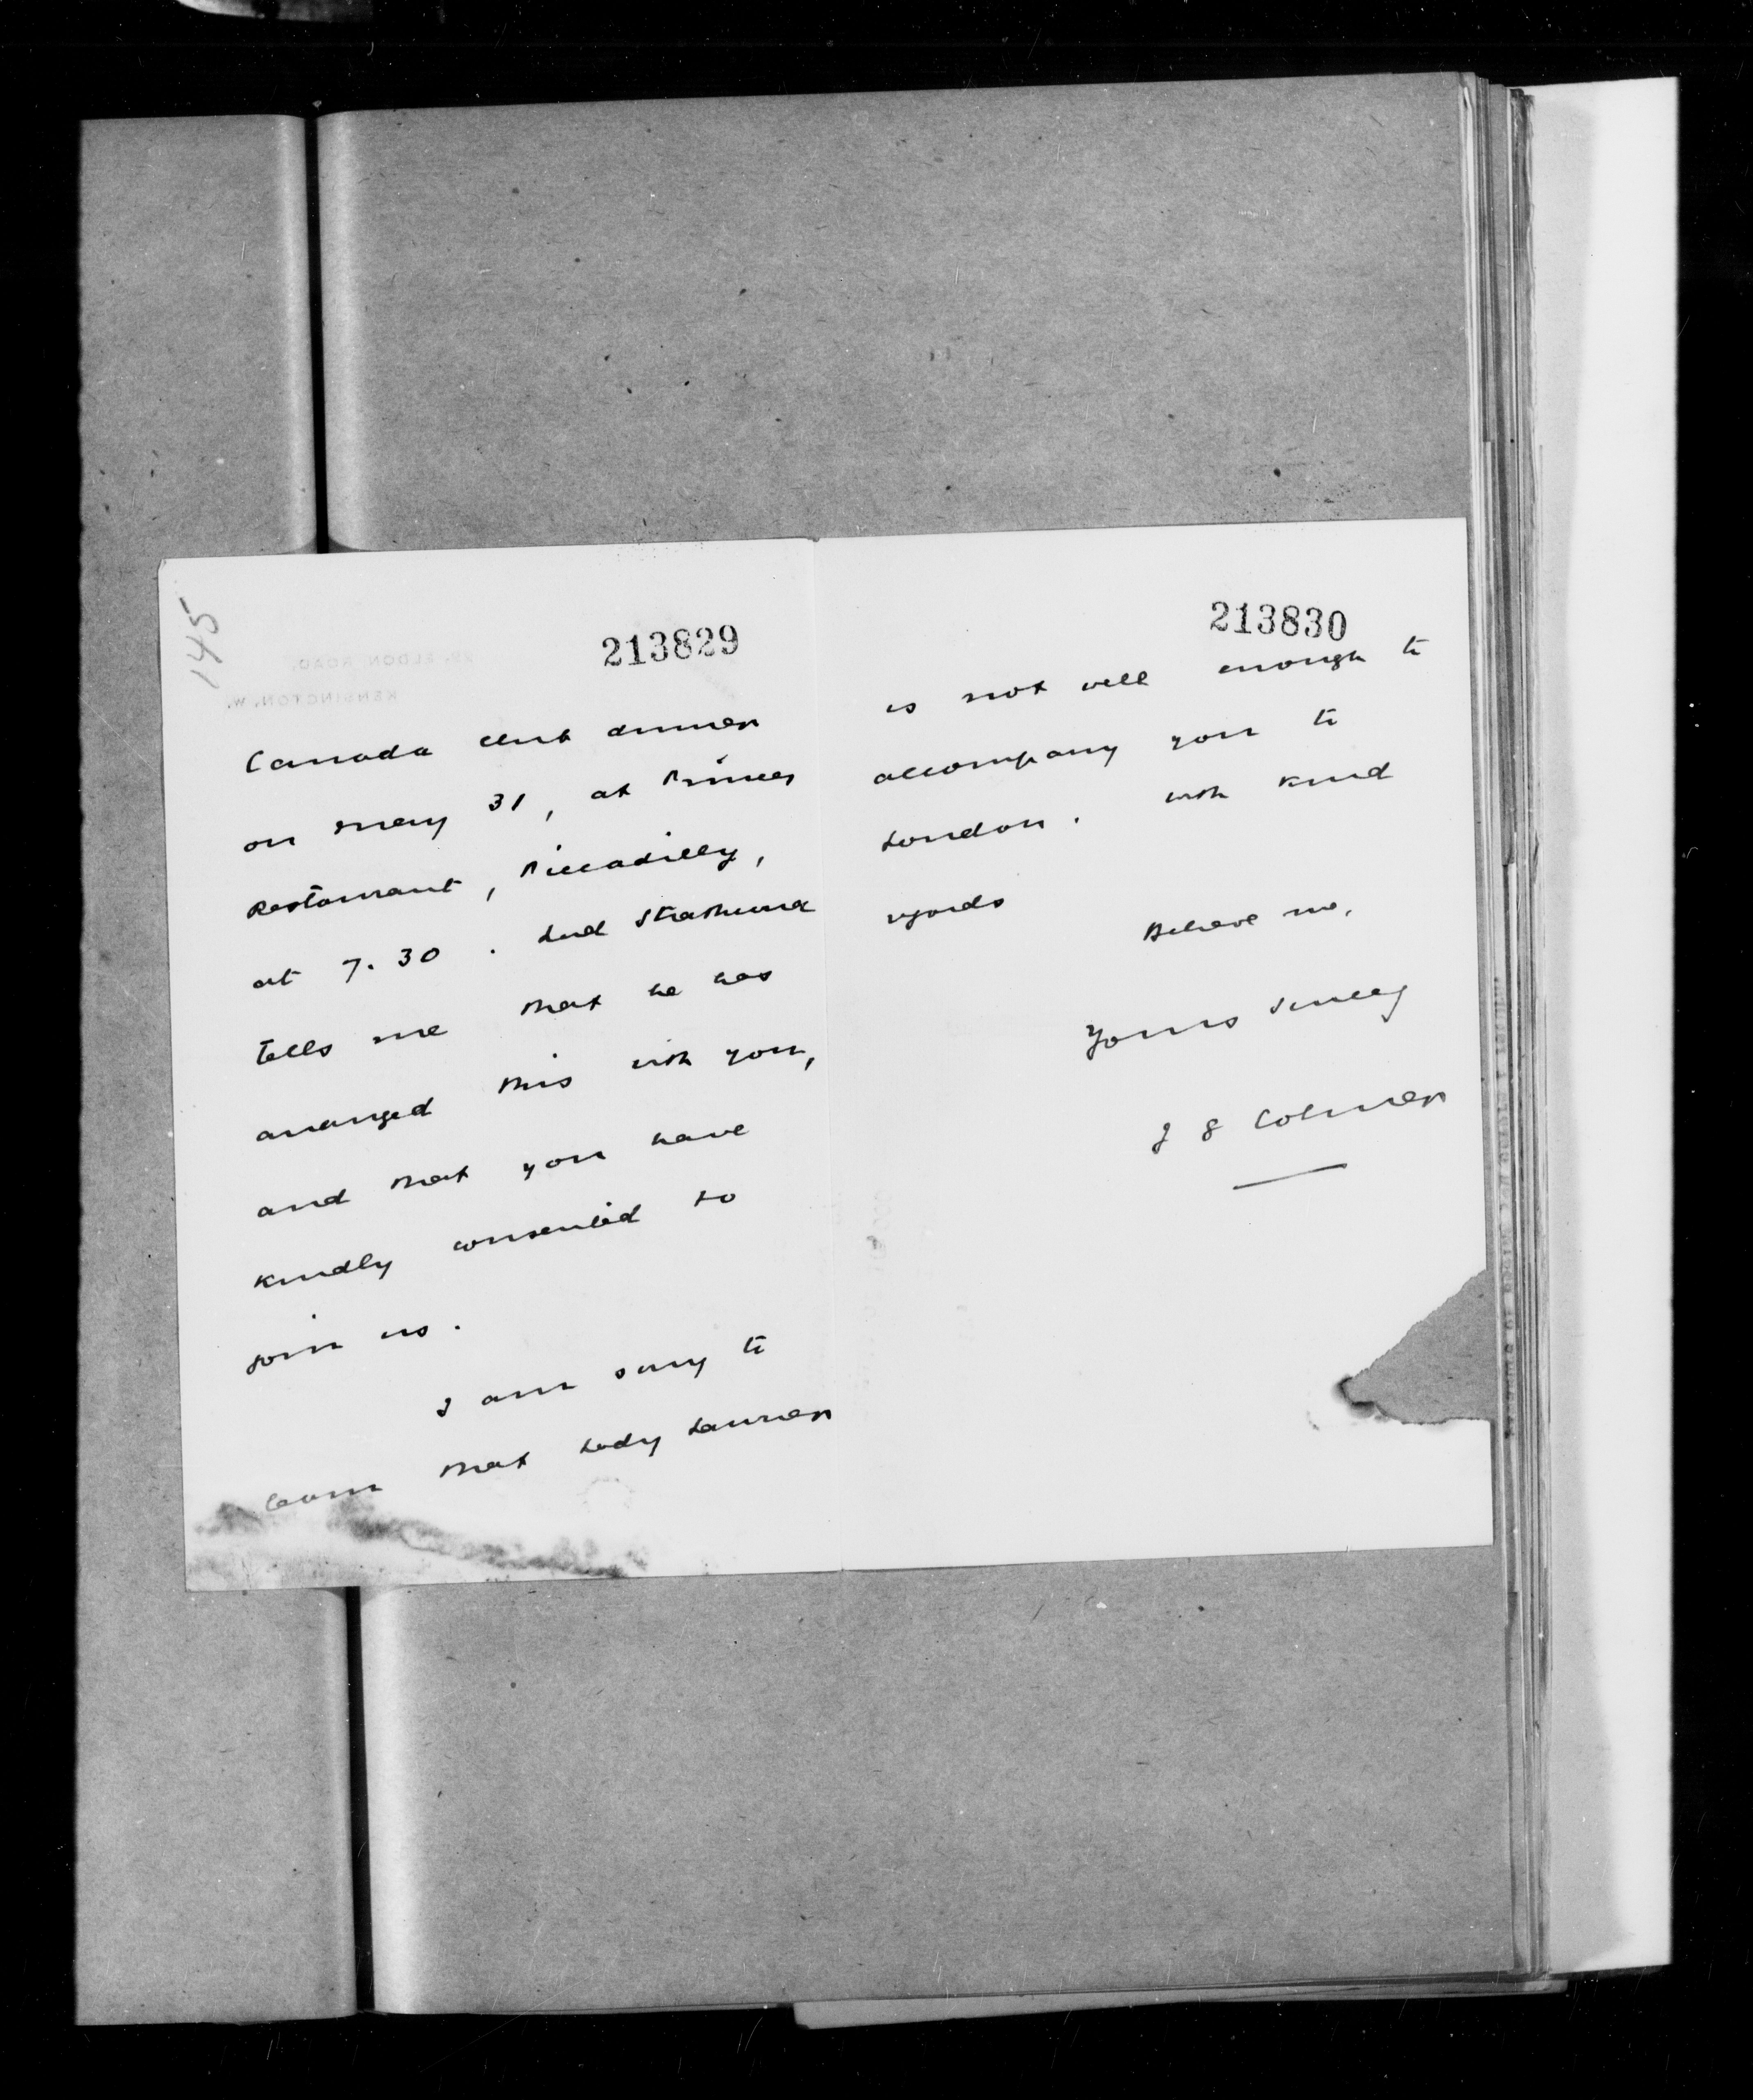 145
213829
Canada Club dinner
on May 31, at Princes
Restaurant, Piccadilly,
at 7.30. Lord Strathcona
tells me that he has
arranged this with you,
and that you have
kindly consented to
join us.
I am sorry to
learn that Lady Laurier
213830
is not well enough to
accompany you to
London. With kind
regards
Believe me,
Yours sincerely
J G Colmer